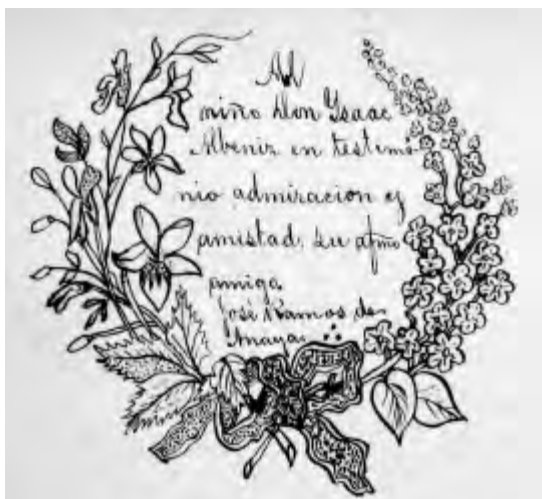 Al
niño Don Isaac
Albeniz en testimo
nio admiracion y
amistad. su afmo
amigo
José Ramos de
Anaya ∴